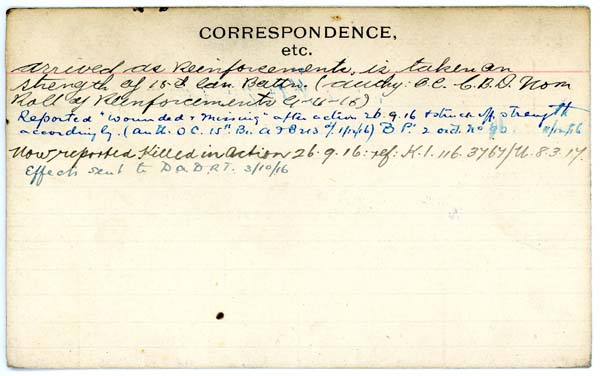 CORRESPONDENCE,
etc.
arrived as Reinforcements, is taken on
strength of 15th Can. Battn. (authy: O.C. C.B.D. Nom
Roll of Reinforcements 6-16)
Reported "wounded & missing" after action 26.9.16 & struck off strength
accordingly. (auth. O.C. 15th Bn. A & B213 d/1/10/16) B P. 2 ord. no 90
Now reported Killed in action 26.9.16: ref: K.1. 116. 3767/U. 8.3.17.
Effects sent to D.A.D.R.T. 3/10/16